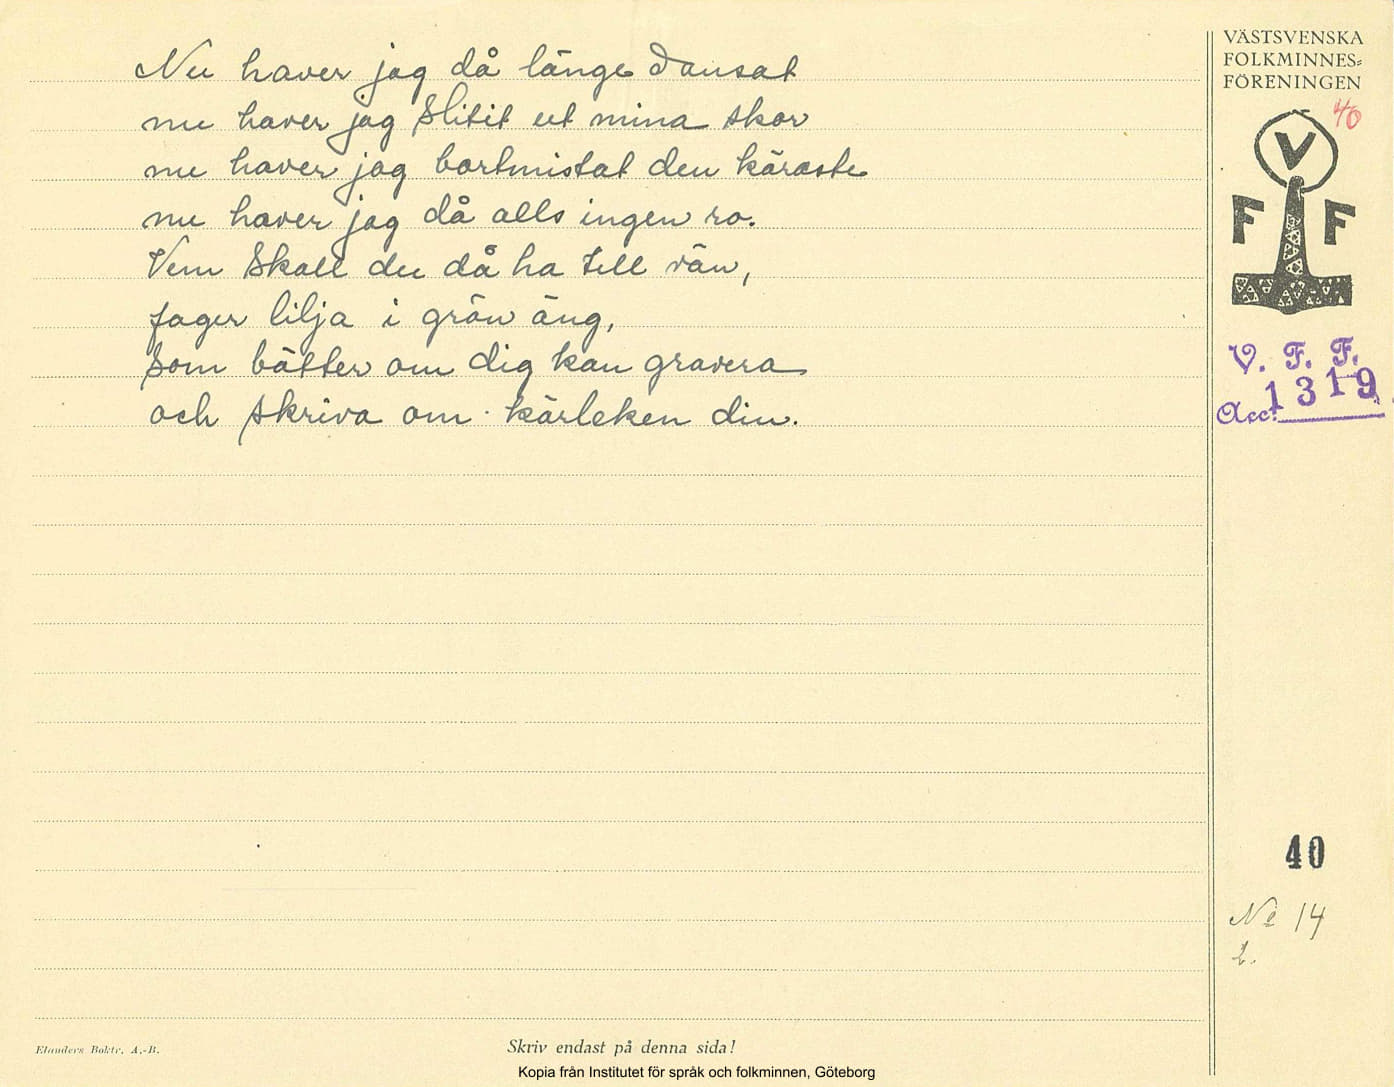 Nu haver jag då länge dansat
nu haver jag slitit ut mina skor
nu haver jag bortmistat den käraste
nu haver jag då alls ingen ro.
Vem skall du då ha till vän,
fager lilja i grön äng,
som bätter om dig kan gravera
och skriva om kärleken din.
VÄSTSVENSKA
FOLKMINNES-
FÖRENINGEN
40
V
F F
V. F. F.
1319
Acc:
40
No 14
2.
Elanders Boktr. A.-B.
Skriv endast på denna sida!
Kopia från Institutet för språk och folkminnen, Göteborg